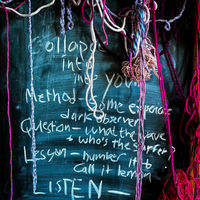 Collapse
into
into you
Method - some experience
dark observer
Question - what the wave
& who's the surfer
Lesson - number it &
call it lemon
LISTEN -